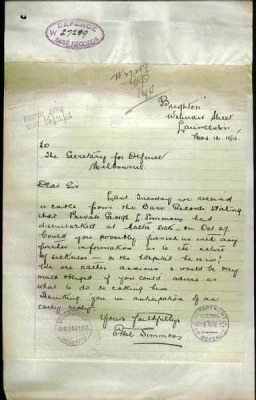 DEFENCE
W 27289
BASE RECORDS
"Brighton"
Welman Street
Launceston
Nov 12 1915
To
The Secretary for Defence
Melbourne
Dear Sir
Last Tuesday we received
a cable from the Base Records stating
that Private George L Simmons had
disembarked at Malta sick on Oct 27
Could you possibly furnish us with any
further information as to the nature
of sickness or the hospital he is in?
We are rather anxious & would be very
much obliged if you could advise us
what to do re cabling him
Thanking you in anticipation of an
early reply
Yours faithfully
Simmons